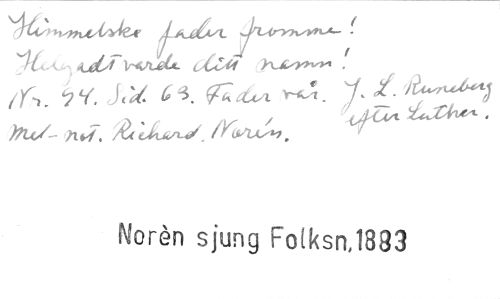 Himmelske fader fromme!
Helgadt varde ditt namn!
Nr. 94. Sid. 63. Fader vår. J. L. Runeberg
Mel-not. Richard. Norén. efter Luther.
Norèn sjung Folksn,1883